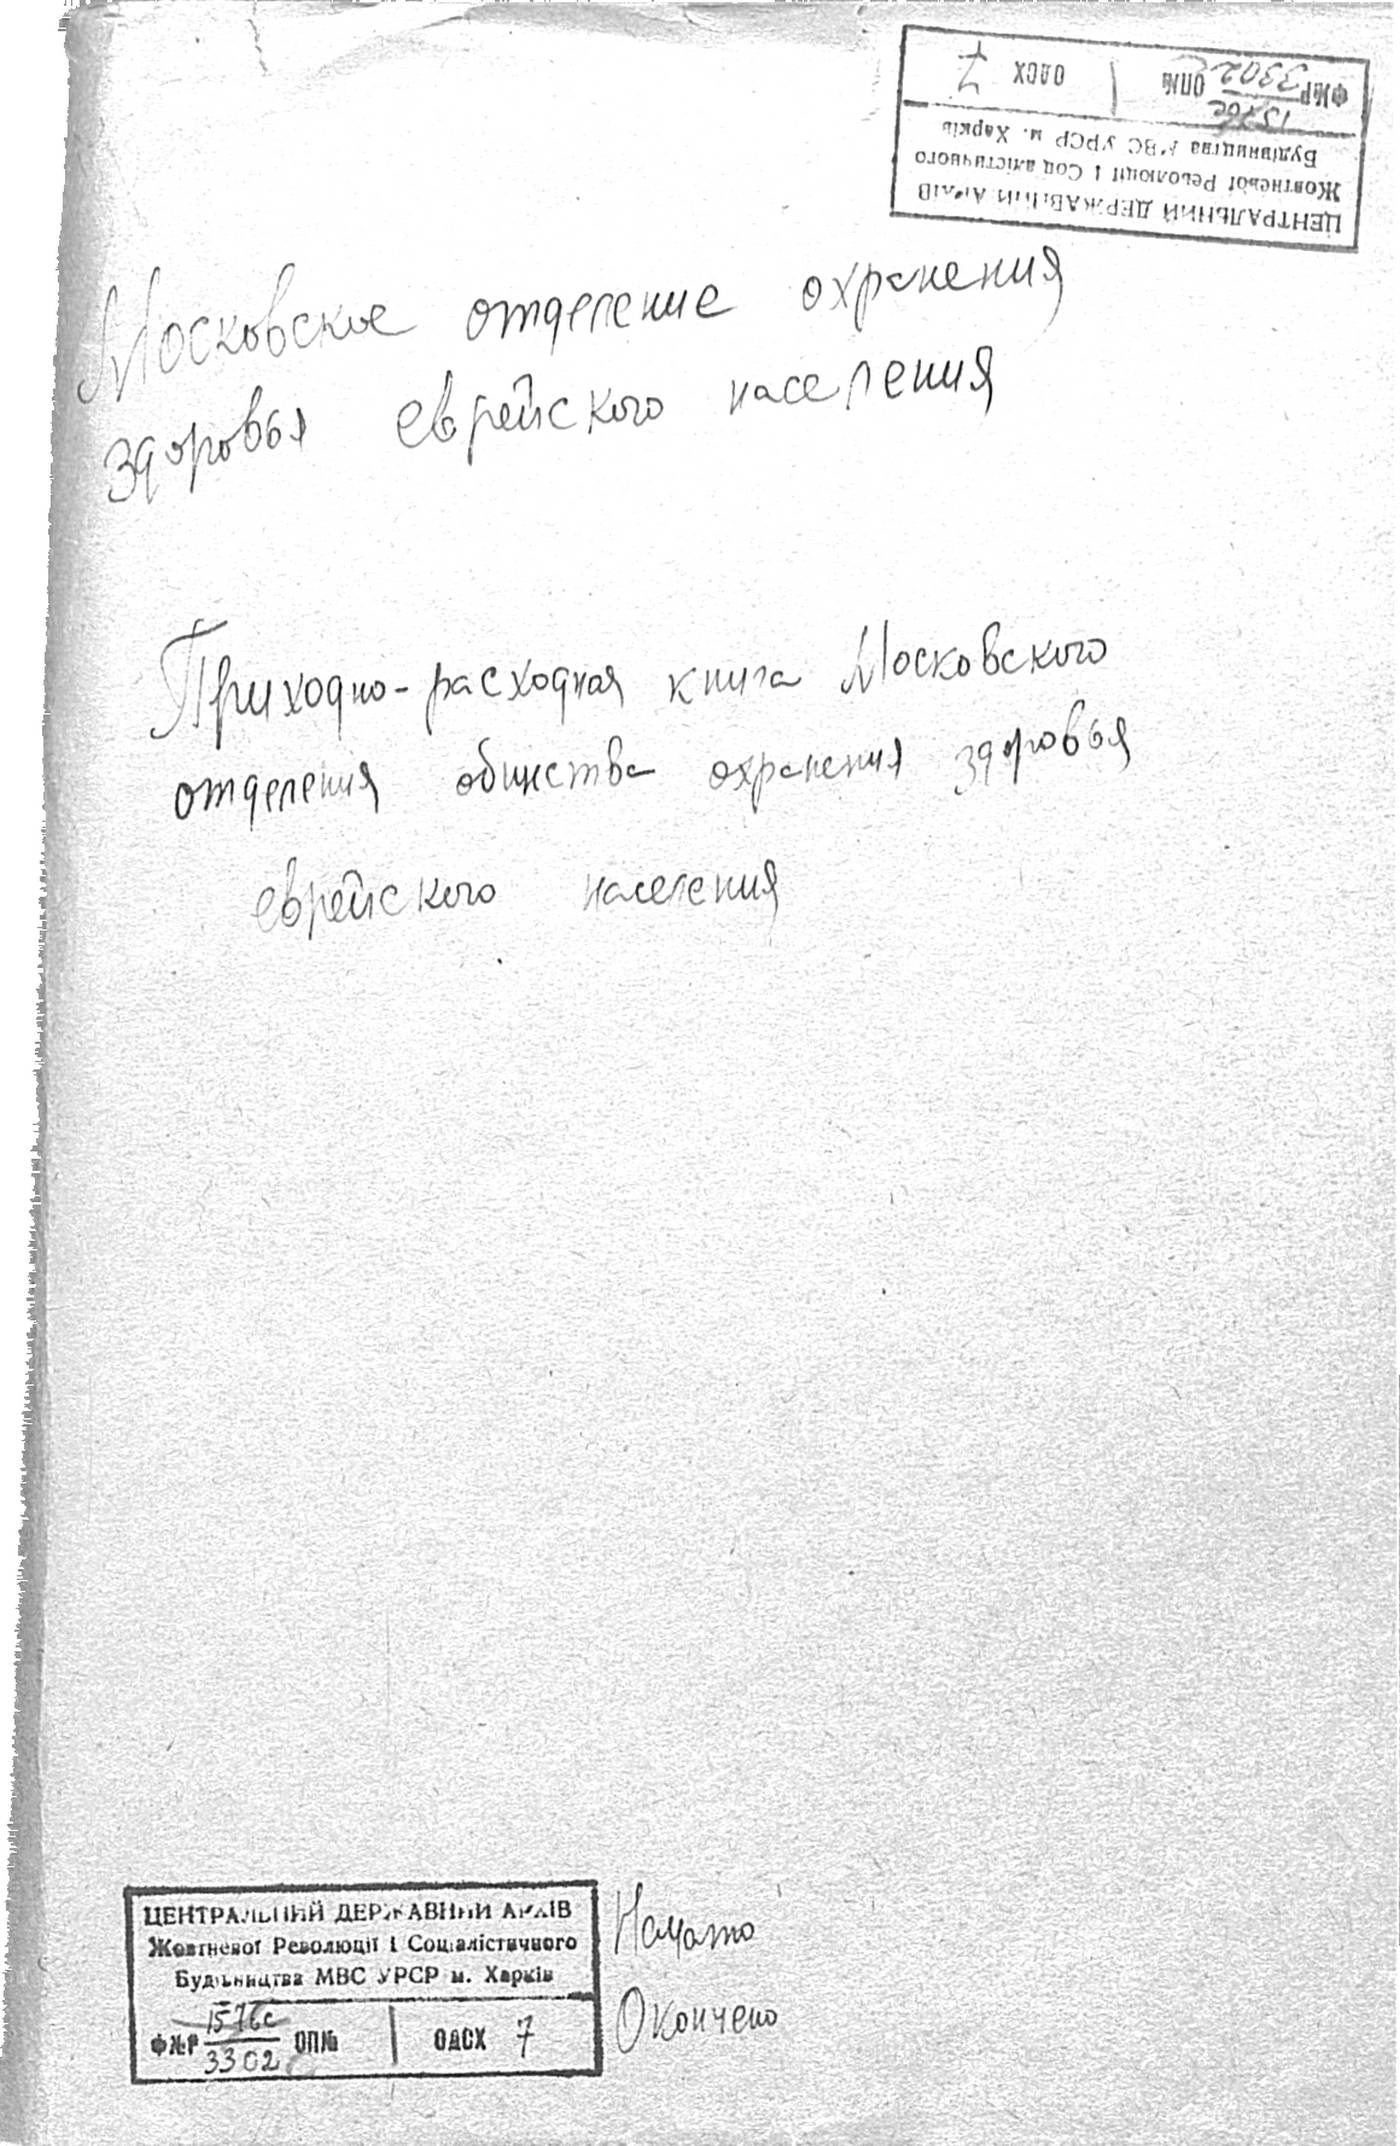 ЦЕНТРАЛЬНИЙ ДЕРЖАВНИЙ АРХІВ
Жовтневої Революції і Соціалістичного
Будівництва МВС УРСР м. Харків
Ф№Р 1576с 3302 ОП№ ОДСХ 7
Московское отделение охранения
здоровья еврейского населения
Приходно-расходная книга Московского
отделения общества охранения здоровья
еврейского населения
ЦЕНТРАЛЬНИЙ ДЕРЖАВНИЙ АРХІВ
Жовтневої Революції і Соціалістичного
Будівництва МВС УРСР м. Харків
Ф№Р 1576с 3302 ОП№ ОДСХ 7
Начато
Окончено